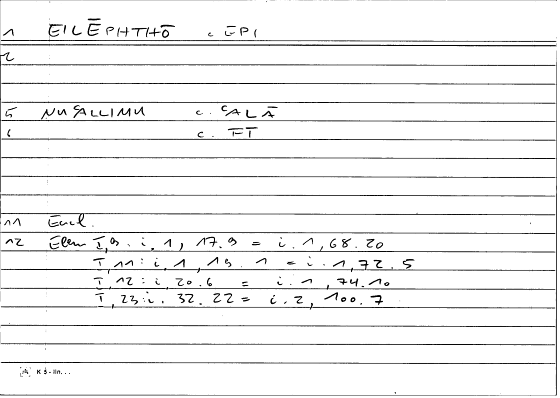 1 EILĒPHTHŌ c. EPI
2
5 NUSALLIMU c. SALĀ
6 c. FĪ
11 Eucl.
12 Elem I,9 : i. 1, 17.9 = i. 1, 68.20
I,11 : i. 1, 19. 1 = i. 1, 72. 5
I,12 : i, 20.6 = i. 1, 74.10
I,23 : i. 32.22 = i. 2, 100.7